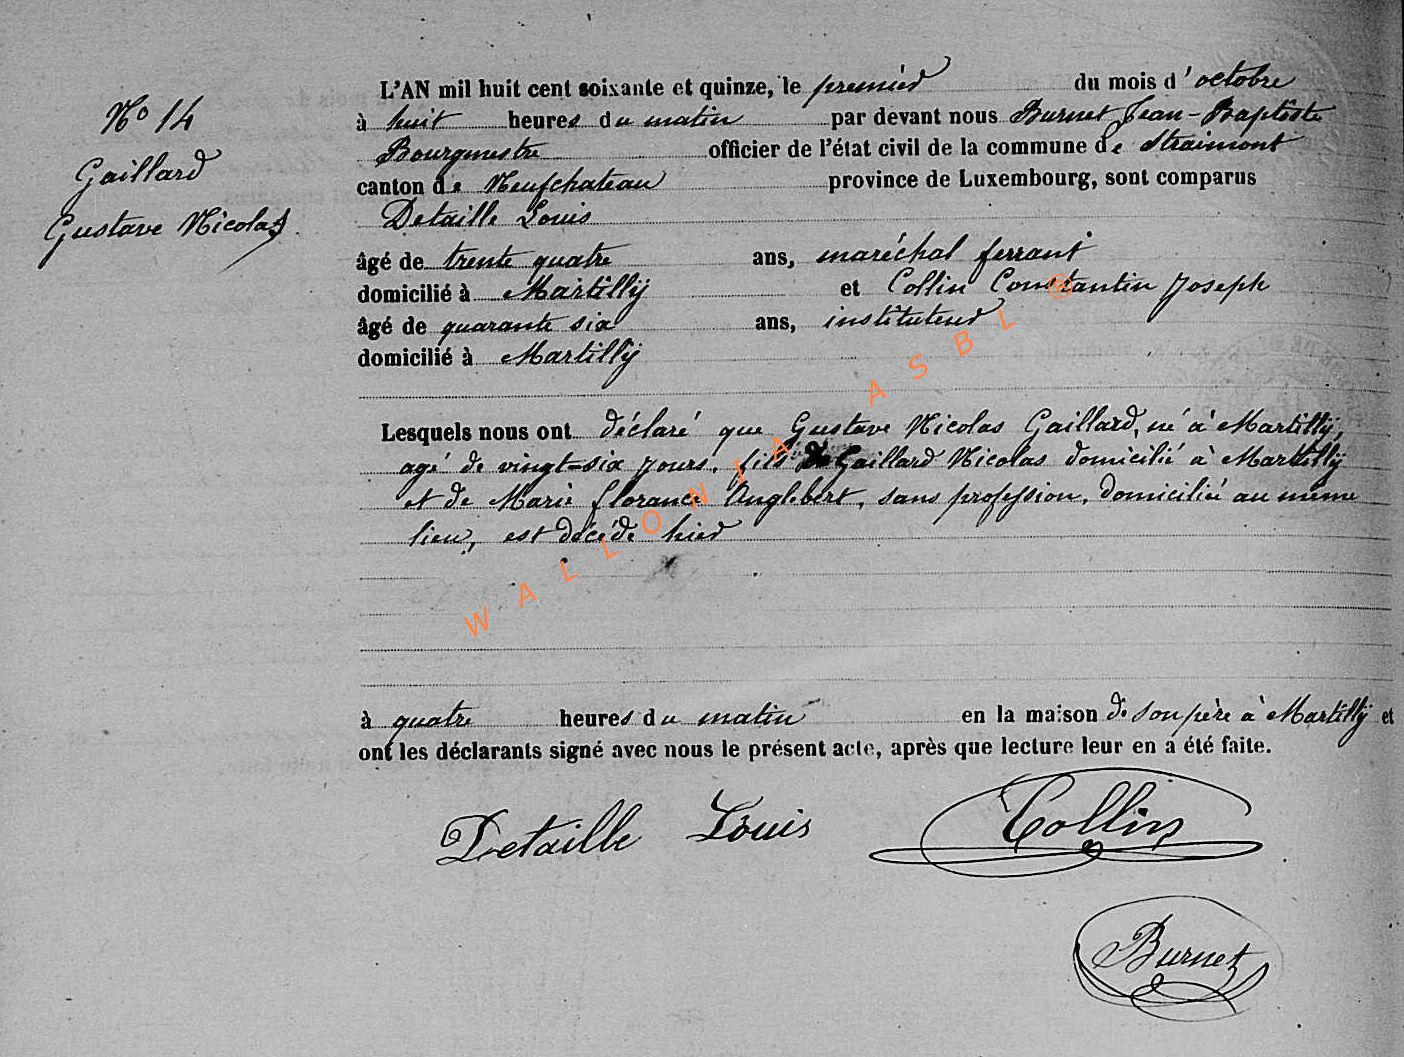 N° 14
Gaillard
Gustave Nicolas.
L'AN mil huit cent soixante et quinze, le premier du mois d'octobre
à huit heures du matin par devant nous Burnet Jean-Baptiste
Bourgmestre officier de l'état civil de la commune de Straimont
canton de Neufchateau province de Luxembourg, sont comparus
Detaille Louis
âgé de trente quatre ans, maréchal ferrant
domicilié à Martilly et Collin Constantin Joseph
âgé de quarante six ans, instituteur
domicilié à Martilly
Lesquels nous ont déclaré que Gustave Nicolas Gaillard, né à Martilly,
agé de vingt-six jours, fils de Gaillard Nicolas domicilié à Martilly
et de Marie florance Anglebert, sans profession, domiciliée au même
lieu, est décédé hier
à quatre heures du matin en la maison de son père à Martilly et
ont les déclarants signé avec nous le présent acte, après que lecture leur en a été faite.
Detaille Louis Collin
Burnet
WALLONIA ASBL ®